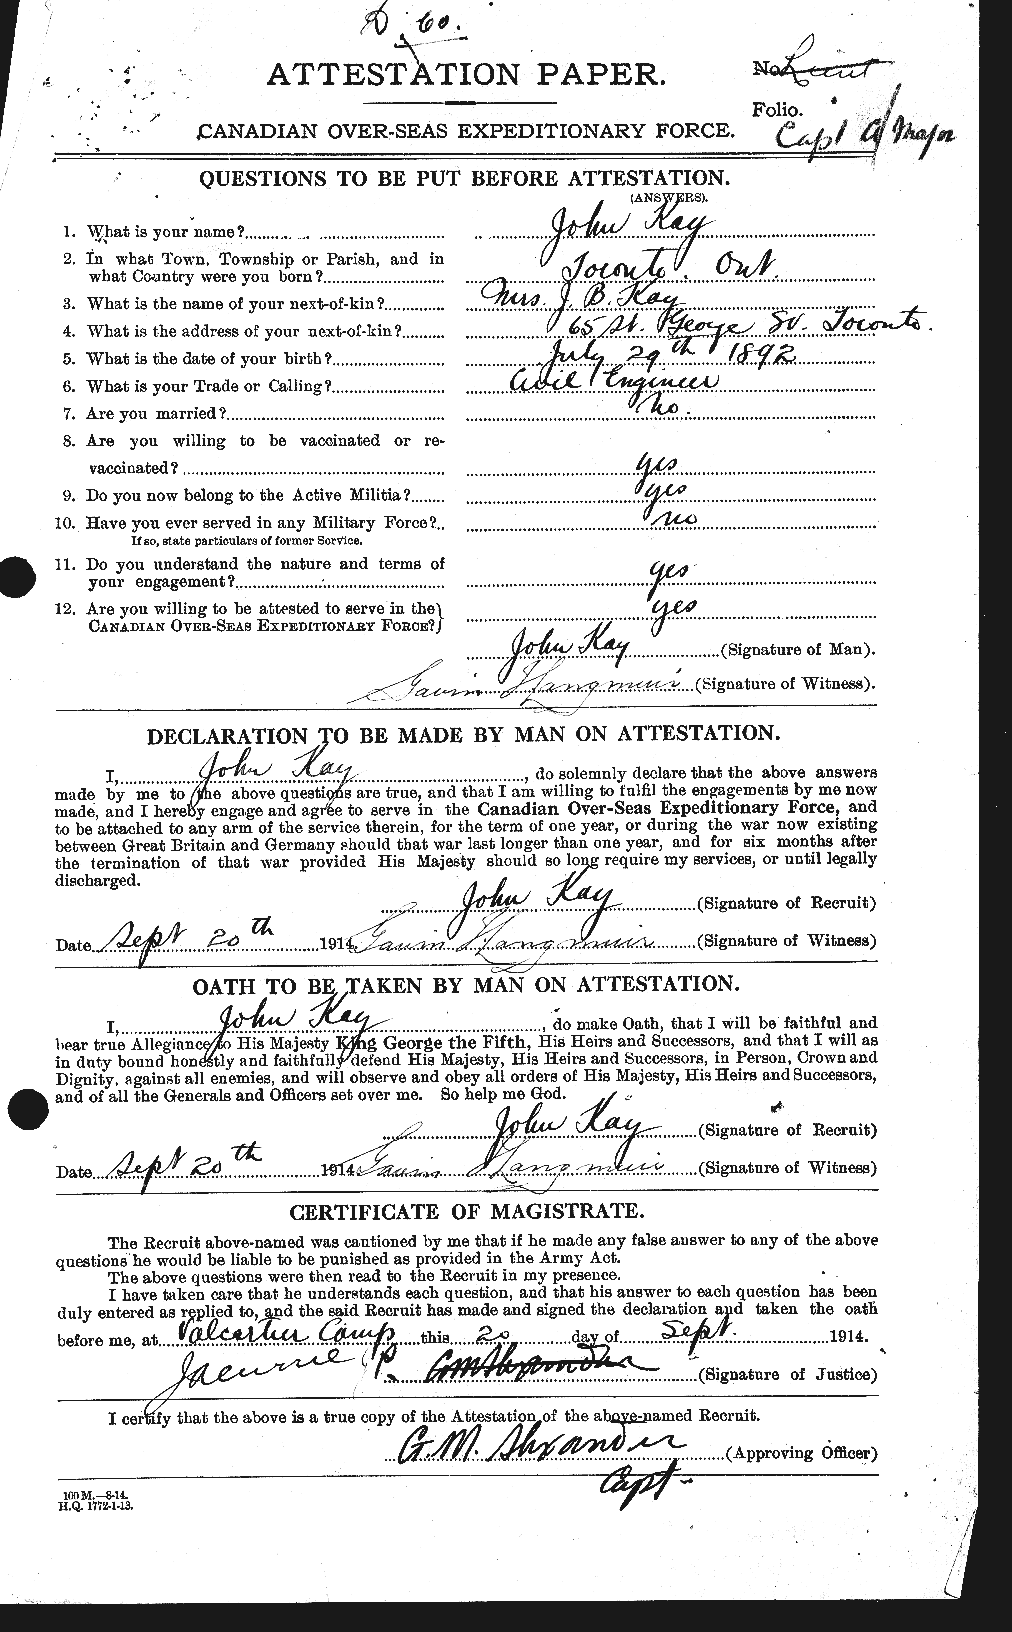 D. 60.
ATTESTATION PAPER.
No. Lieut
Folio.
CANADIAN OVER-SEAS EXPEDITIONARY FORCE.
Capt a/Major
QUESTIONS TO BE PUT BEFORE ATTESTATION.
(ANSWERS).
1. What is your name? John Kay
2. In what Town, Township or Parish, and in
what Country were you born? Toronto. Ont.
3. What is the name of your next-of-kin? Mrs. J. B. Kay
4. What is the address of your next-of-kin? 65 St. George St. Toronto.
5. What is the date of your birth? July 29th 1892
6. What is your Trade or Calling? Civil Engineer
7. Are you married? No.
8. Are you willing to be vaccinated or re-
vaccinated? yes
9. Do you now belong to the Active Militia? yes
10. Have you ever served in any Military Force? no
If so, state particulars of former Service.
11. Do you understand the nature and terms of
your engagement? yes
12. Are you willing to be attested to serve in the
CANADIAN OVER-SEAS EXPEDITIONARY FORCE? yes
John Kay (Signature of Man).
Gavin Langmuir (Signature of Witness).
DECLARATION TO BE MADE BY MAN ON ATTESTATION.
I, John Kay, do solemnly declare that the above answers
made by me to the above questions are true, and that I am willing to fulfil the engagements by me now
made, and I hereby engage and agree to serve in the Canadian Over-Seas Expeditionary Force, and
to be attached to any arm of the service therein, for the term of one year, or during the war now existing
between Great Britain and Germany should that war last longer than one year, and for six months after
the termination of that war provided His Majesty should so long require my services, or until legally
discharged.
John Kay (Signature of Recruit)
Date Sept 20th 1914. Gavin Langmuir (Signature of Witness)
OATH TO BE TAKEN BY MAN ON ATTESTATION.
I, John Kay, do make Oath, that I will be faithful and
bear true Allegiance to His Majesty King George the Fifth, His Heirs and Successors, and that I will as
in duty bound honestly and faithfully defend His Majesty, His Heirs and Successors, in Person, Crown and
Dignity, against all enemies, and will observe and obey all orders of His Majesty, His Heirs and Successors,
and of all the Generals and Officers set over me. So help me God.
John Kay (Signature of Recruit)
Date Sept 20th 1914 Gavin Langmuir (Signature of Witness)
CERTIFICATE OF MAGISTRATE.
The Recruit above-named was cautioned by me that if he made any false answer to any of the above
questions he would be liable to be punished as provided in the Army Act.
The above questions were then read to the Recruit in my presence.
I have taken care that he understands each question, and that his answer to each question has been
duly entered as replied to, and the said Recruit has made and signed the declaration and taken the oath
before me, at Valcartier Camp this 20 day of Sept. 1914.
J.P. G M Alexander (Signature of Justice)
I certify that the above is a true copy of the Attestation of the above-named Recruit.
G. M. Alexander (Approving Officer)
Capt-
100 M.—8-14.
H.Q. 1772-1-13.